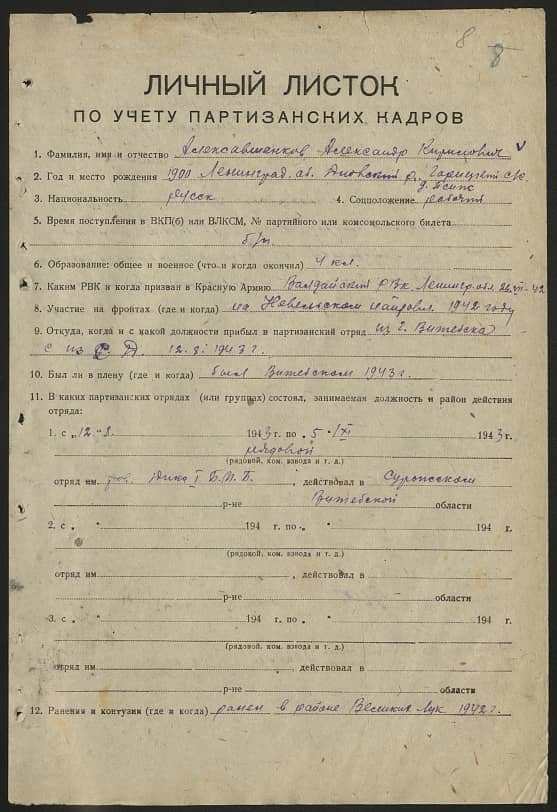 8 8
ЛИЧНЫЙ ЛИСТОК
ПО УЧЕТУ ПАРТИЗАНСКИХ КАДРОВ
1. Фамилия, имя и отчество Александр Кириллович
2. Год и место рождения 1900 Ленинград. об. Дновский р.
3. Национальность русск 4. Соцположение рабочий
5. Время поступления в ВКП(б) или ВЛКСМ, № партийного или комсомольского билета
б/п
6. Образование: общее и военное (что и когда окончил) 4 кл.
7. Каким РВК и когда призван в Красную Армию Валдайский РВК Ленингр. обл.
8. Участие на фронтах (где и когда) на Невельском направл. 1942 году
9. Откуда, когда и с какой должности прибыл в партизанский отряд из г. Витебска
12.8.1943 г.
10. Был ли в плену (где и когда) был Витебском 1943 г.
11. В каких партизанских отрядах (или группах) состоял, занимаемая должность и район действия
отряда:
1. с „12" 8. 1943 г. по „5" XI 1943 г.
рядовой
(рядовой, ком. взвода и т. д.)
отряд им. I , действовал в Суражском
р-не Витебской области
2. с „ " 194 г. по „ " 194 г.
(рядовой, ком. взвода и т. д.)
отряд им. , действовал в
р-не области
3. с „ " 194 г. по „ " 194 г.
(рядовой, ком. взвода и т. д.)
отряд им. , действовал в
р-не области
12. Ранения и контузии (где и когда) ранен в районе Великих Лук 1942 г.